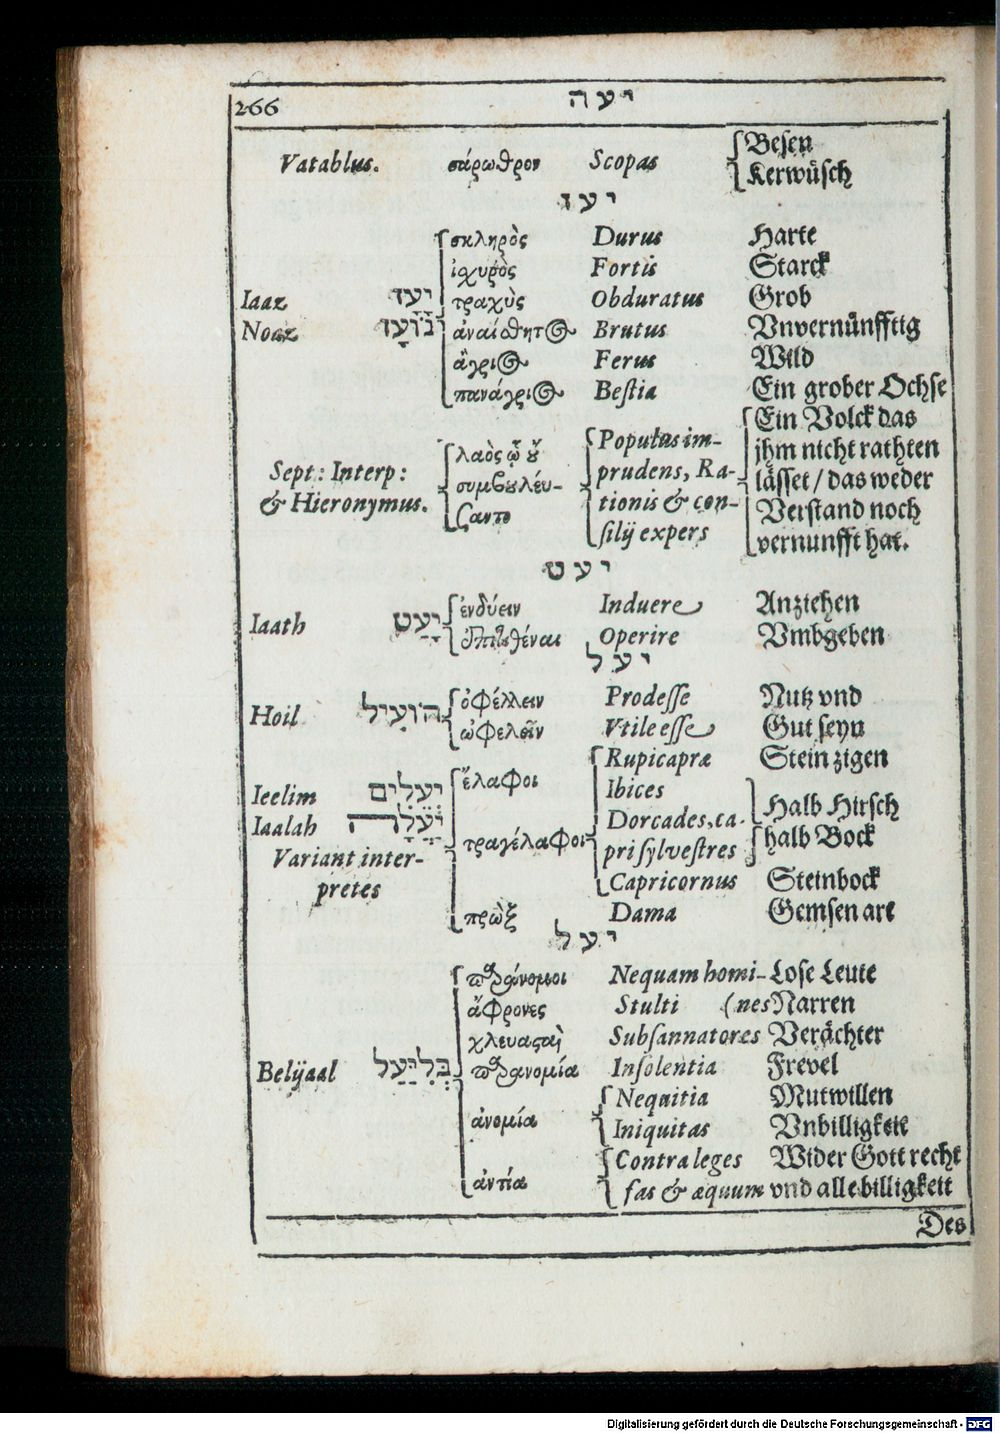 266 יעה
Vatablus. σάρωθρον Scopas Besen
Kerwüsch
יעז
σκληρὸς Durus Harte
ἰχυρὸς Fortis Starck
Iaaz יָעָז τραχὺς Obduratus Grob
Noaz נוֹעָז ἀναίσθητος Brutus Vnvernünfftig
ἄγριος Ferus Wild
πανάγριος Bestia Ein grober Ochse
Ein Volck das
λαὸς ᾧ οὔ Populus im- jhm nicht rathten
Sept: Interp: συμβουλέυ- prudens, Ra- lässet / das weder
& Hieronymus. σαντο tionis & con- Verstand noch
silij expers vernunfft hat.
יעט
ἐνδύειν Induere Anziehen
Iaath יָעַט ἐπιτιθέναι Operire Vmbgeben
יעל
ὀφέλλειν Prodesse Nutz vnd
Hoil הוֹעִיל ὠφελεῖν Vtile esse Gut seyn
Rupicapræ Stein zigen
ἔλαφοι Ibices
Ieelim יְעֵלִים Dorcades, ca- Halb Hirsch
Iaalah יַעֲלָה τραγέλαφοι pri sylvestres halb Bock
Variant inter-
pretes Capricornus Steinbock
πρὼξ Dama Gemsen art
יעל
παράνομοι Nequam homi- Lose Leute
ἄφρονες Stulti (nes Narren
χλευασταὶ Subsannatores Verächter
Belijaal בְּלִיַּעַל παρανομία Insolentia Frevel
Nequitia Mutwillen
ἀνομία Iniquitas Vnbilligkeit
Contra leges Wider Gott recht
ἀντία fas & æquum vnd alle billigkeit
Des
Digitalisierung gefördert durch die Deutsche Forschungsgemeinschaft - DFG